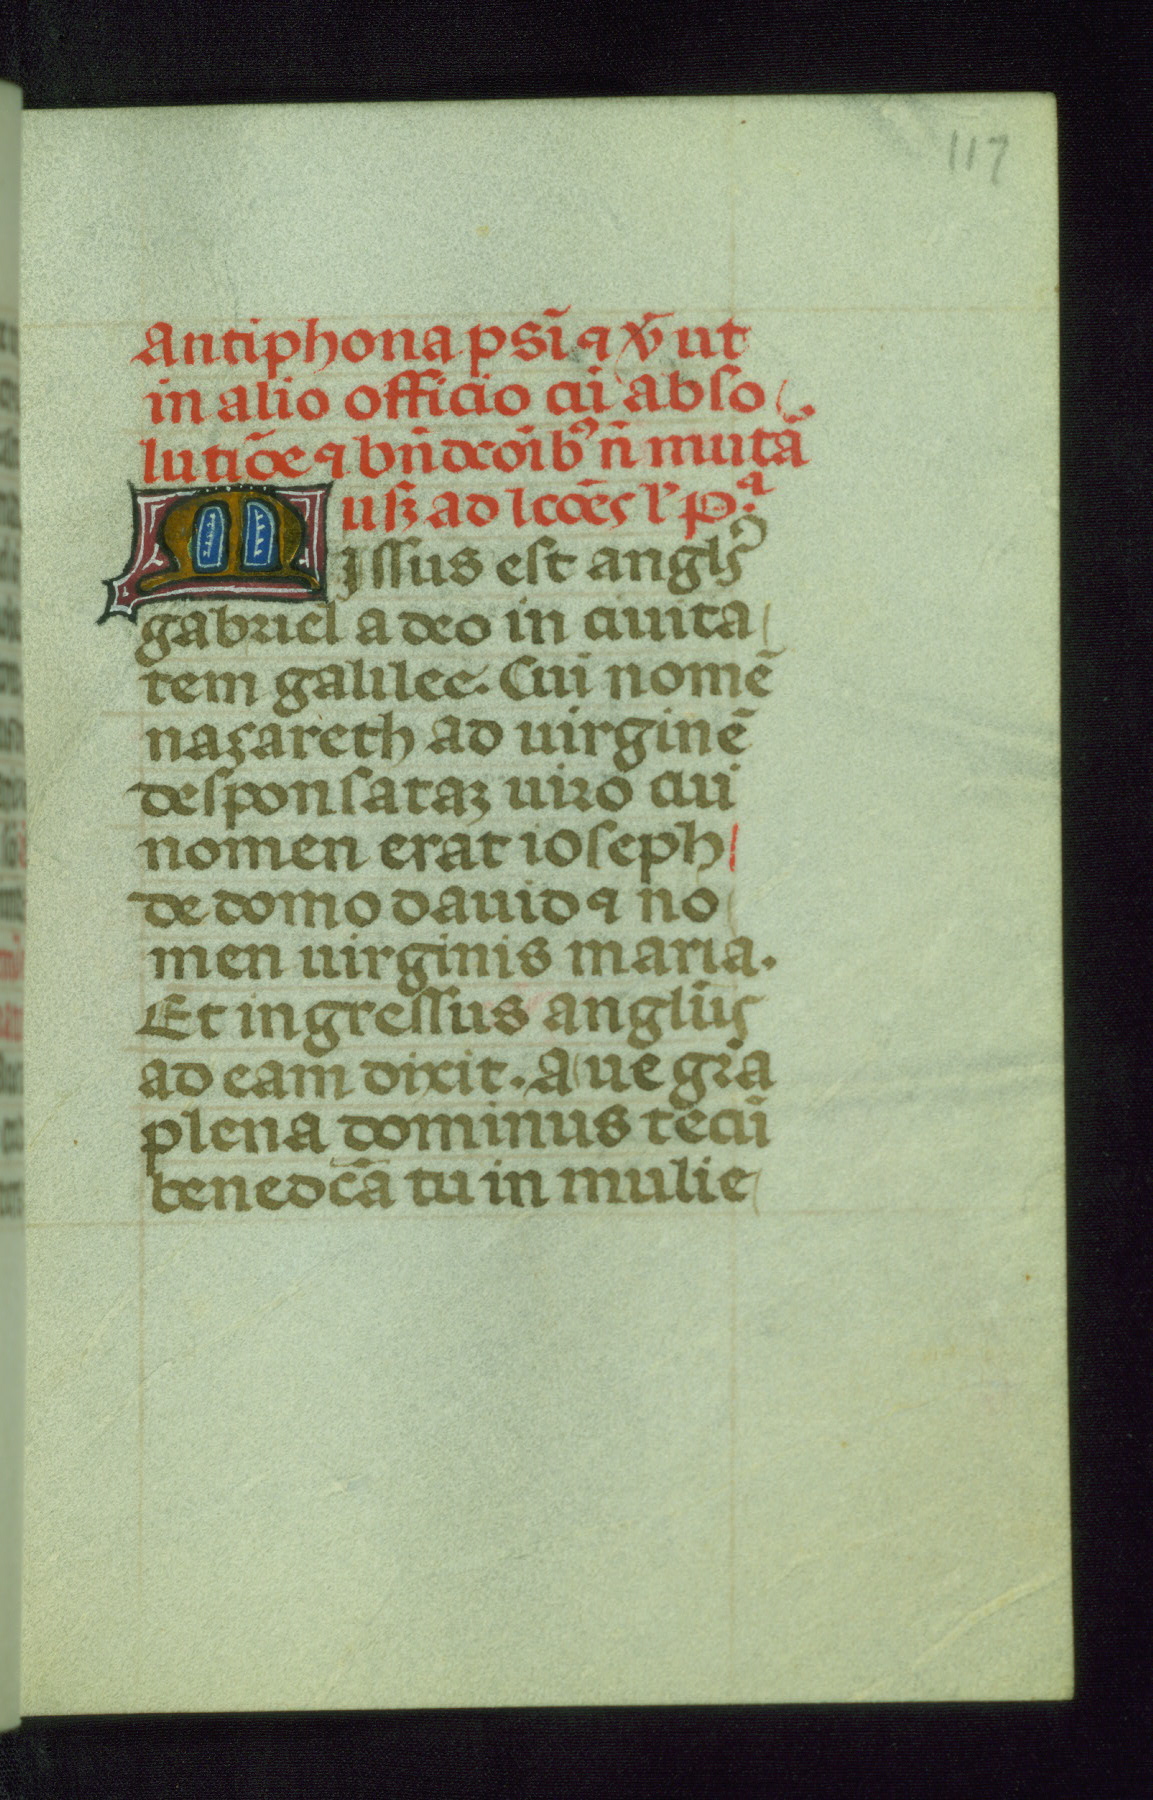 117
Antiphona psī ⁊ ꝟ ut
in alio officio cū abso
lutiōe ⁊ bn̄deōibꝰ n̄ mutā
usꝫ ad lcōes
Missus est anglꝰs
gabriel a deo in ciuita
tem galilee. Cui nomē
nazareth ad uirginē
desponsataꝫ uiro cui
nomen erat ioseph
de domo dauid ⁊ no
men uirginis maria.
Et ingressus anglūs
ad eam dixit. Aue gr̄a
plena dominus tecū
benedc̄ā tu in mulie